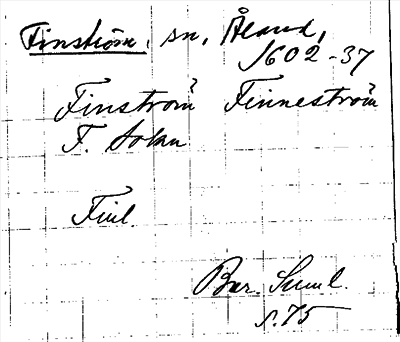 Finström, sn, Åland,
1602-37
Finström Finneström
F. Sokn
Finl.
s. 75